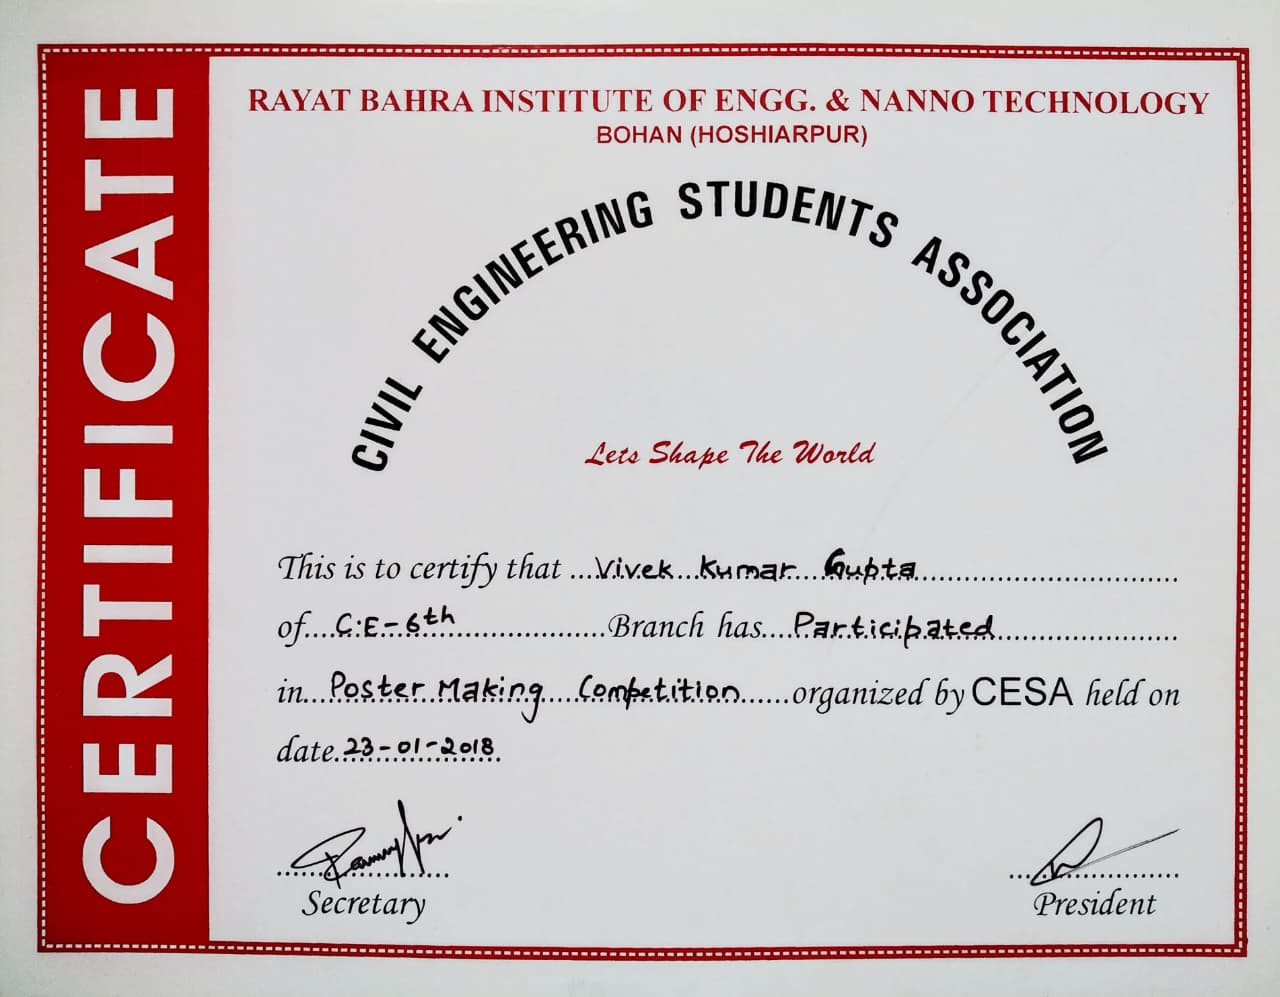 CERTIFICATE
RAYAT BAHRA INSTITUTE OF ENGG. & NANNO TECHNOLOGY
BOHAN (HOSHIARPUR)
CIVIL ENGINEERING STUDENTS ASSOCIATION
Lets Shape The World
This is to certify that ...Vivek...Kumar....Gupta................................
of....C.E-6th..................Branch has....Participated......................
in...Poster Making...Competition......organized by CESA held on
date.23-01-2018.
Secretary
President